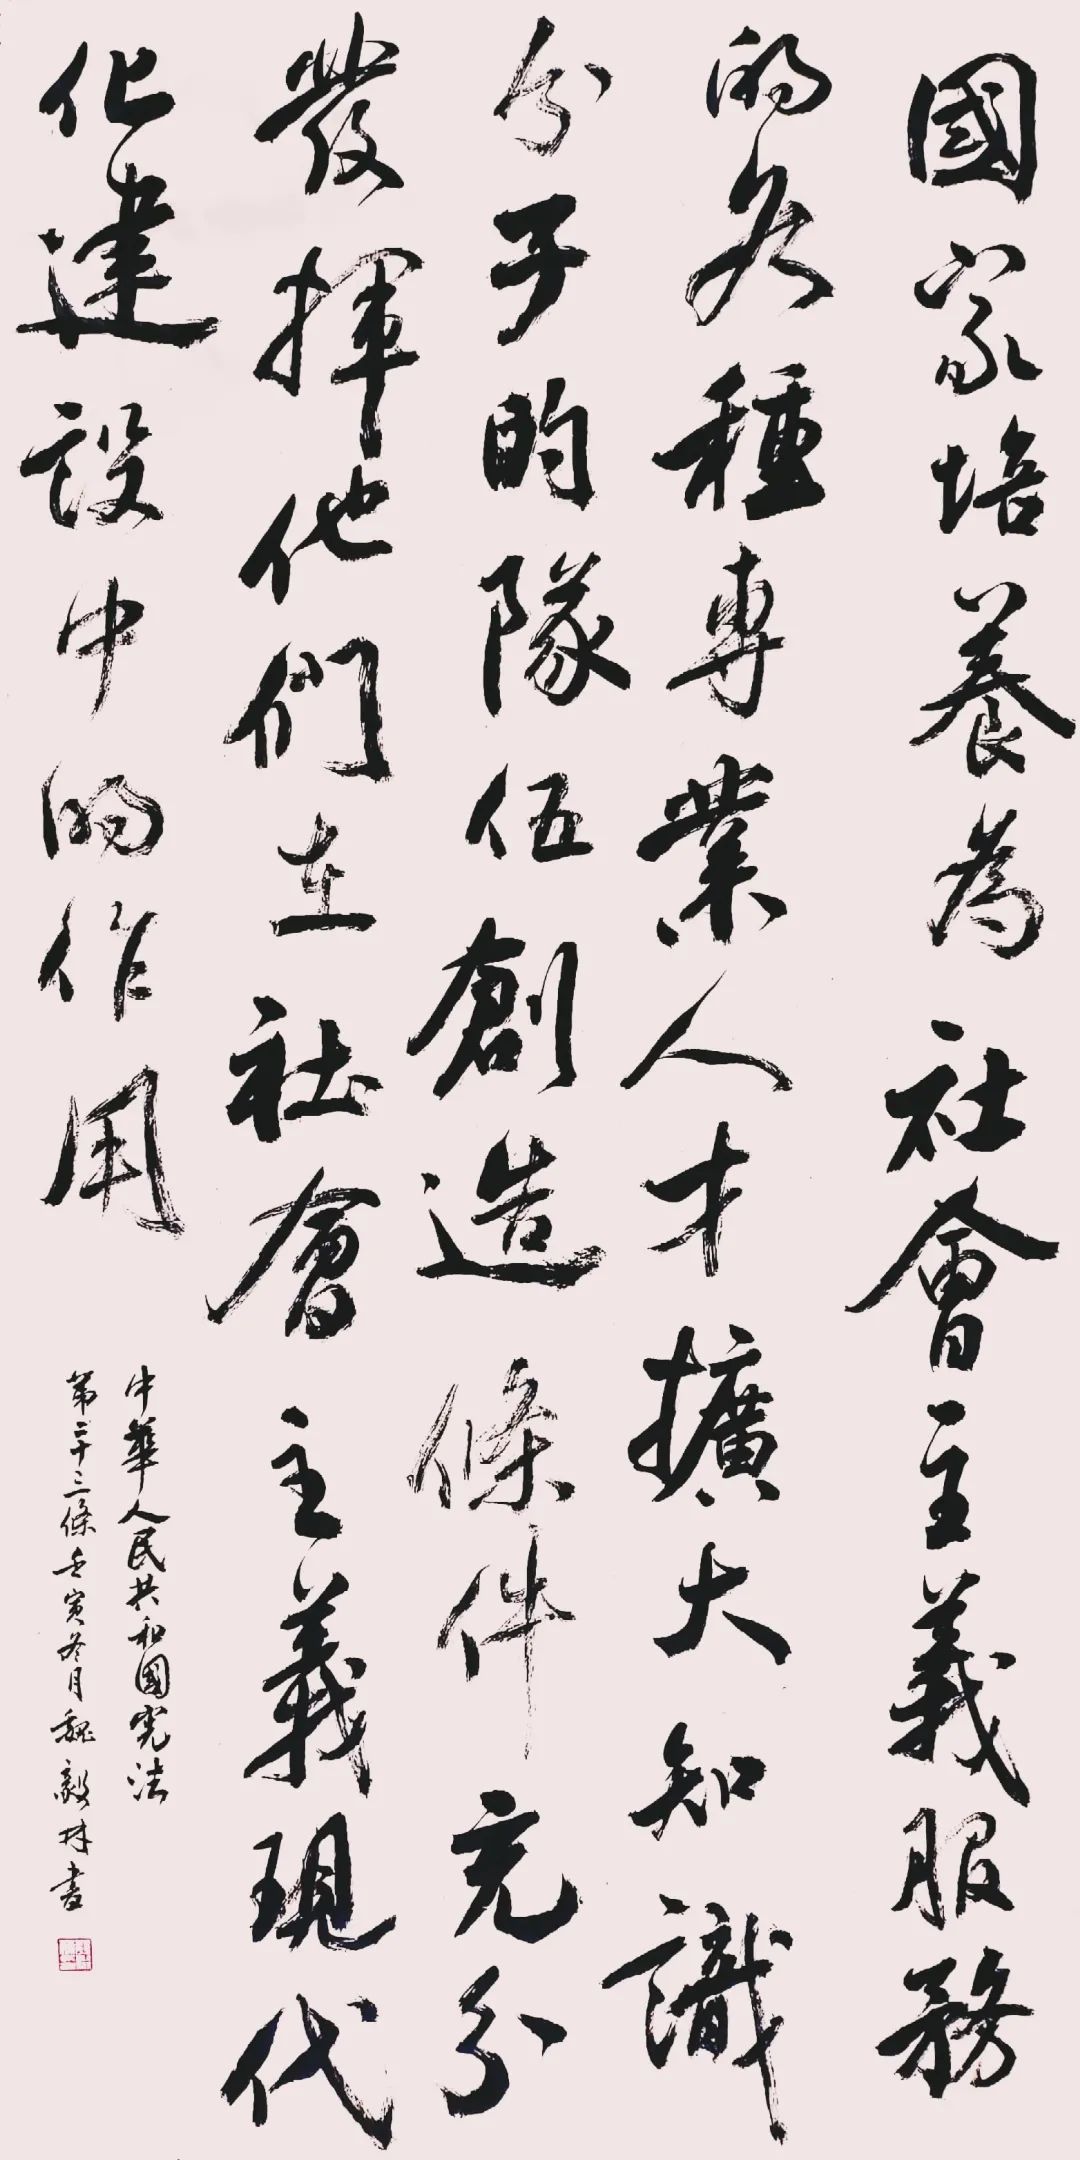 國家培養為社會主義服務
的各種專業人才擴大知識
分子的隊伍創造條件充分
發揮他們在社會主義現代
化建設中的作用
中華人民共和國憲法
第二十三條壬寅冬月魏毅林書